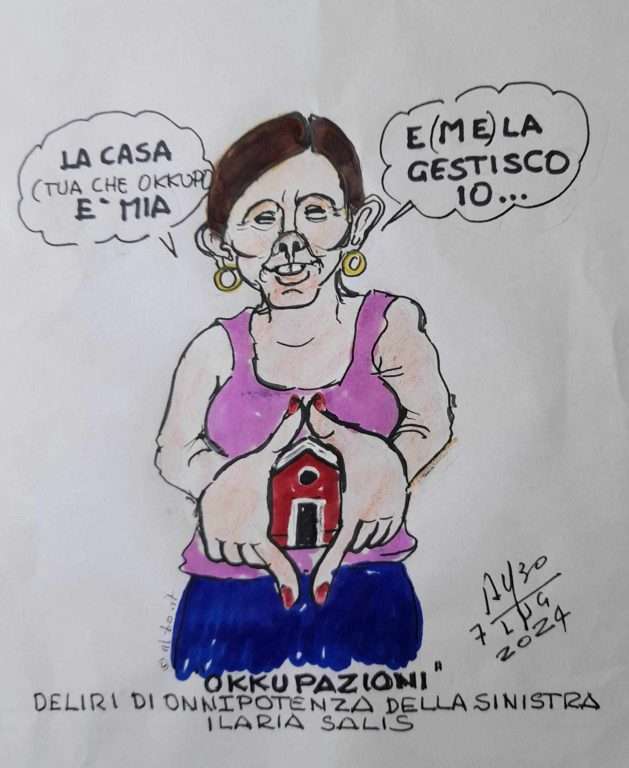 LA CASA
(TUA CHE OKKUPO
E` MIA
E (ME) LA
GESTISCO
IO...
7 LUG
2024
"OKKUPAZIONI"
DELIRI DI ONNIPOTENZA DELLA SINISTRA
ILARIA SALIS